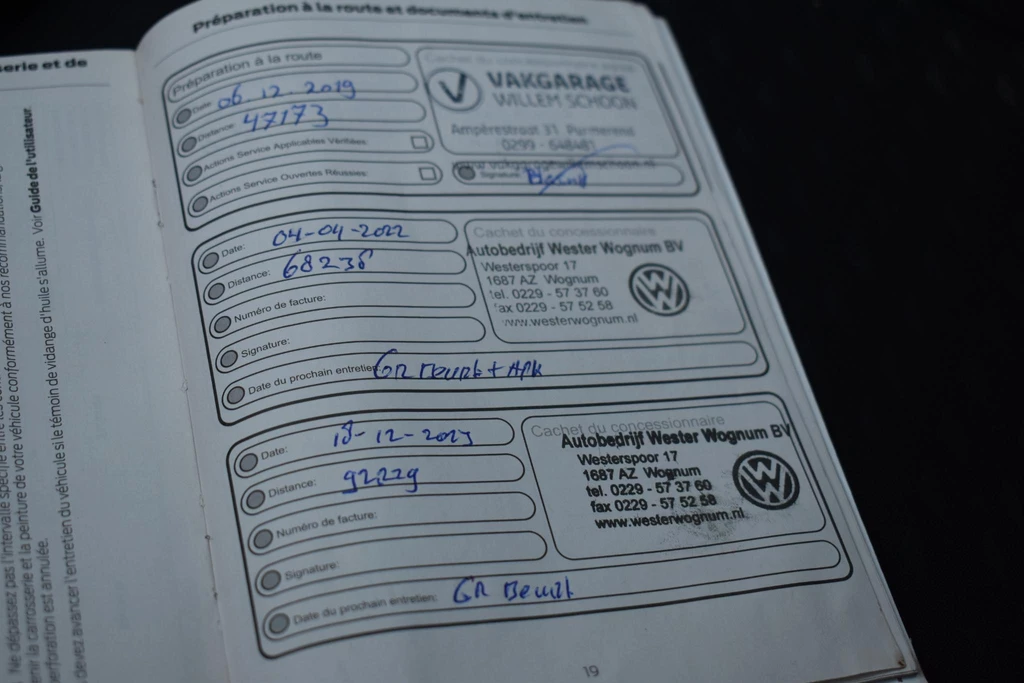 serie et de
Ne dépassez pas l'intervalle spécifié entre les
nir la carrosserie et la peinture de votre véhicule conformément à nos recommandations
erforation est annulée.
devez avancer l'entretien du véhicule si le témoin de vidange d'huile s'allume. Voir Guide de l'utilisateur.
Préparation à la route et documents d'entretien
Préparation à la route
Date: 06.12.2019
Distance: 47173
Actions Service Applicables Vérifiées:
Actions Service Ouvertes Réussies:
VAKGARAGE
WILLEM SCHOON
Ampèrestraat 31 Purmerend
0299 - 648481
www.vakgaragewillemschoon.nl
Signature:
Date: 04-04-2022
Distance: 68236
Numéro de facture:
Signature:
Date du prochain entretien: GR Beurt + APK
Cachet du concessionnaire
Autobedrijf Wester Wognum BV
Westerspoor 17
1687 AZ Wognum
tel. 0229 - 57 37 60
fax 0229 - 57 52 58
www.westerwognum.nl
Date: 18-12-2023
Distance: 92229
Numéro de facture:
Signature:
Date du prochain entretien: GR Beurt
Cachet du concessionnaire
Autobedrijf Wester Wognum BV
Westerspoor 17
1687 AZ Wognum
tel. 0229 - 57 37 60
fax 0229 - 57 52 58
www.westerwognum.nl
19